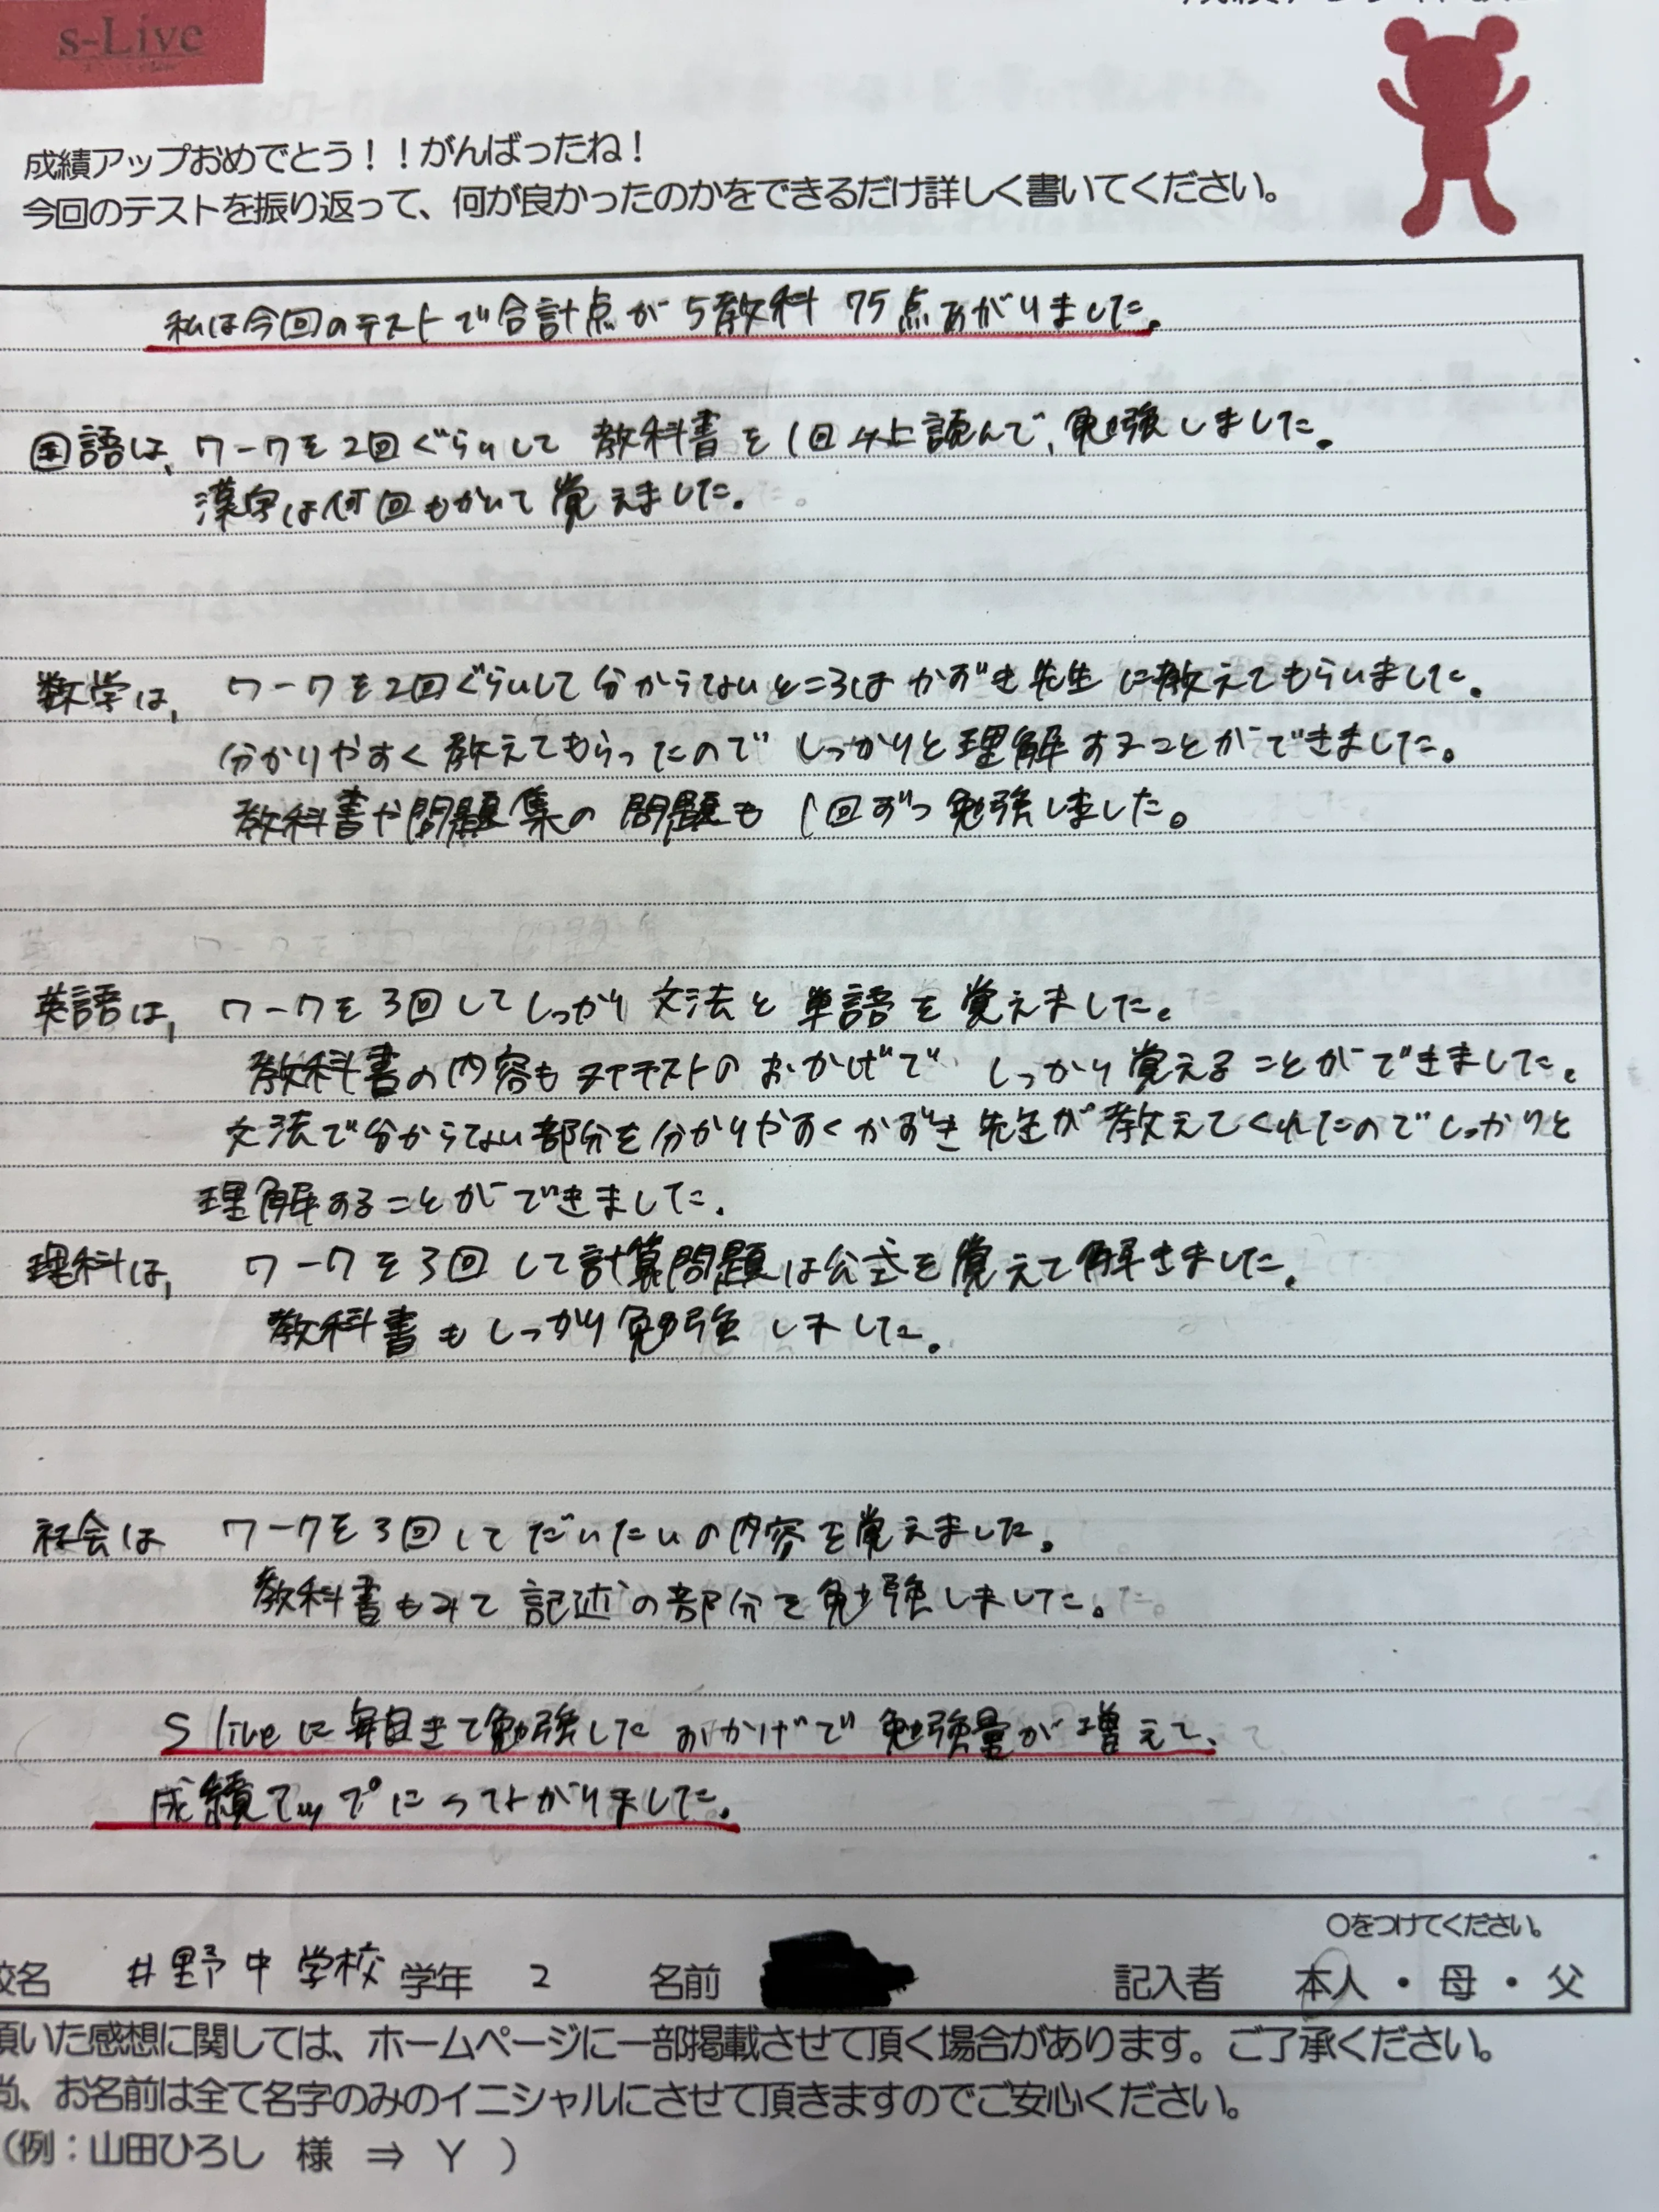 s-Live
成績アップおめでとう！！がんばったね！
今回のテストを振り返って、何が良かったのかをできるだけ詳しく書いてください。
私は今回のテストで合計点が5教科 75点あがりました。
国語は、ワークを2回ぐらいして 教科書を1回以上読んで、勉強しました。
漢字は何回もかいて覚えました。
数学は、ワークを2回ぐらいして分からないところはかずき先生に教えてもらいました。
分かりやすく教えてもらったのでしっかりと理解することができました。
教科書や問題集の問題も1回ずつ勉強しました。
英語は、ワークを3回してしっかり文法と単語を覚えました。
教科書の内容もテストのおかげで しっかり覚えることができました。
文法で分からない部分を分かりやすくかずき先生が教えてくれたのでしっかりと
理解することができました。
理科は、ワークを3回して計算問題は公式を覚えて解きました。
教科書もしっかり勉強しました。
社会は ワークを3回してだいたいの内容を覚えました。
教科書もみて記述の部分を勉強しました。
S liveに毎日きて勉強したおかげで勉強量が増えて、
成績アップにつながりました。
〇をつけてください。
校名 井野中学校 学年 2 名前 記入者 本人・母・父
頂いた感想に関しては、ホームページに一部掲載させて頂く場合があります。ご了承ください。
尚、お名前は全て名字のみのイニシャルにさせて頂きますのでご安心ください。
（例：山田ひろし 様 ⇒ Y ）